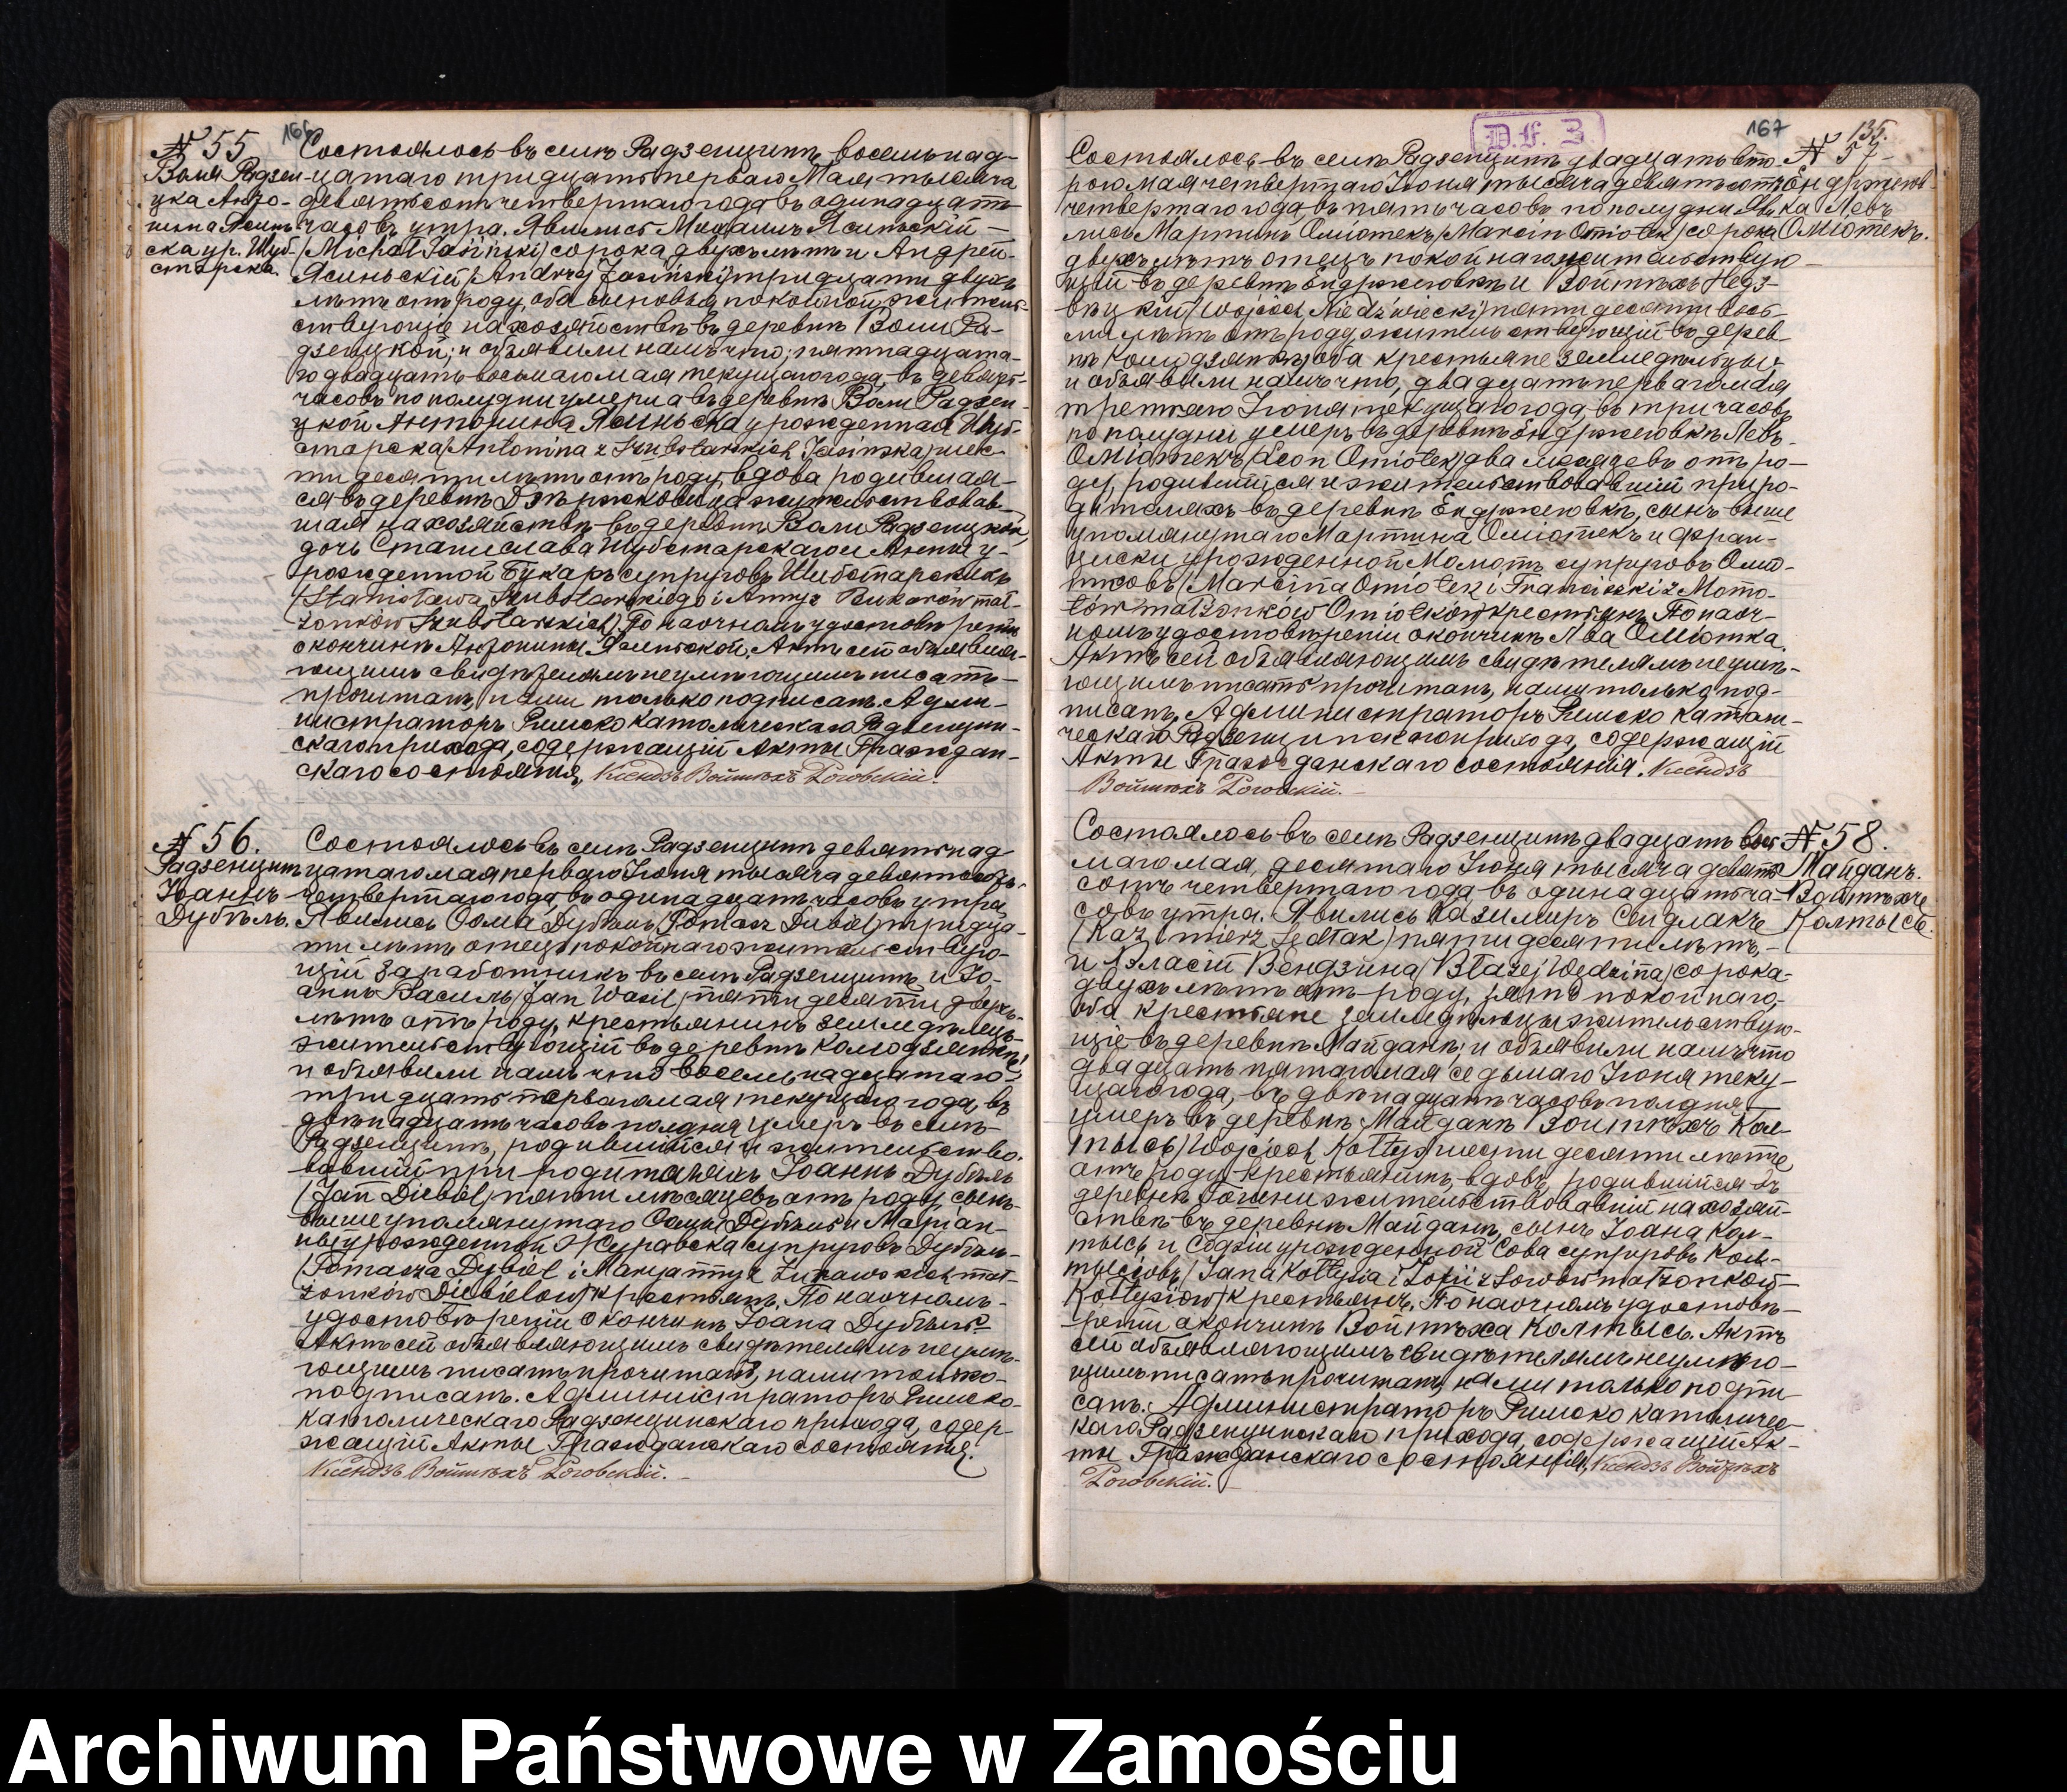 166
№ 55
Воля Радзен-
цка Анто-
нина Ясинь-
ска ур. Шуб-
старска.
Состоялось въ селѣ Радзенцинѣ, восемьнад-
цатаго тридцать перваго Мая тысяча
девятьсотъ четвертаго года въ одинадцать
часовъ утра. Явились Михаилъ Ясинскій
(Michał Jasiński) сорока двухъ лѣтъ и Андрей
Ясиньскій (Andrzy Jasiński) тридцати двухъ
лѣтъ отъ роду, оба сыновья покойной, житель-
ствующіе на хозяйствѣ въ деревнѣ Воли Ра-
дзенцкой; и объявили намъ что, пятнадцата-
го двадцать восьмаго мая текущаго года, въ девять
часовъ по полудни умерла въ деревнѣ Воли Радзен-
цкой Антонина Ясиньска урожденная Шуб-
старска (Antonina z Szubstarskich Jasinska) шес-
ти десяти лѣтъ отъ роду, вдова родившая-
ся въ деревнѣ жительствовав-
шая на хозяйствѣ въ деревнѣ Воли Радзенцкой,
дочь Станислава Шубстарскаго и Анны у-
рожденной Букаръ супруговъ Шубстарскихъ
(Stanisława Szubstarskiego i Anny z Bukarów mał-
żonków Szubstarskich). По наочномъ удостовѣреніи
о кончинѣ Антонины Ясиньской, Актъ сей объявля-
ющимъ свидѣтелямъ неумѣющимъ писать
прочитанъ, нами только подписанъ. Адми-
нистраторъ Римско католическаго Радзенцин-
скаго прихода, содержащій Акты Граждан-
скаго состоянія, Ксендзъ Войтѣхъ Роговскій.
№ 56.
Радзенцинъ
Іоаннъ
Дубѣль.
Состоялось въ селѣ Радзенцинѣ девятьнад
цатаго мая перваго Іюня тысяча девятьсотъ
четвертаго года, въ одинадцать часовъ утра
Явились Ѳома Дубѣль (Tomasz Dubiel) тридца-
ти лѣтъ отецъ покойнаго жительствую-
щій заработникъ въ селѣ Радзенцинѣ, и Іо-
аннъ Василь (Jan Wasil) пяти десяти двухъ
лѣтъ отъ роду, крестьянинъ земледѣлецъ
жительствующій въ деревнѣ Колодзянкѣ;
и объявили намъ что восемьнадцатаго
тридцать перваго мая текущаго года, въ
двѣнадцать часовъ полдня умеръ въ селѣ
Радзенцинѣ, родившійся и жительство-
вавшій при родителяхъ Іоаннъ Дубѣль
(Jan Dubiel) пяти мѣсяцевъ отъ роду, сынъ
вышеупомянутаго Ѳомы Дубѣль и Маріан-
ны урожденной Журавска супруговъ Дубѣль
(Tomasza Dubiel i Maryanny z Żurawskich mał-
żonków Dubielów) крестьянъ. По наочномъ
удостовѣреніи о кончинѣ Іоана Дубѣль
Актъ сей объявляющимъ свидѣтелямъ неумѣ-
ющимъ писать прочитанъ, нами только
подписанъ. Администраторъ Римско-
католическаго Радзенцинскаго прихода, содер-
жащій Акты Гражданскаго состоянія.
Ксендзъ Войтѣхъ Роговскій.
D.F. 3
167
135.
№ 57
Ендржеюв-
ка Левъ
Оміотекъ.
Состоялось въ селѣ Радзенцинѣ двадцать вто
рого мая четвертаго Іюня тысяча девятьсотъ
четвертаго года, въ пять часовъ по полудни Яви
лись Мартинъ Оміотекъ (Marcin Omiotek) сорока
двухъ лѣтъ отецъ покойнаго жительствую-
щій въ деревнѣ Ендржеювкѣ и Войтѣхъ Недз-
вѣцкій (Wojciech Niedźwiecki) пяти десяти вось-
ми лѣтъ отъ роду жительствующій въ дерев-
нѣ Колодзянкѣ, оба крестьяне земледѣльцы;
и объявили намъ что, двадцать перваго мая
третяго Іюня текущаго года, въ три часовъ
по полудни умеръ въ деревнѣ Ендржеювкѣ Левъ
Оміотекъ (Leon Omiotek) два мѣсяцевъ отъ ро-
ду, родившійся и жительствовавшій при ро-
дителяхъ въ деревнѣ Ендржеювкѣ, сынъ выше
упомянутаго Мартина Оміотекъ и Фран-
циски урожденной Момотъ супруговъ Оміот-
ковъ (Marcina Omiotek i Franciszki z Momo-
tów małżonków Omiotków) крестьянъ. По наоч-
номъ удостовѣреніи о кончинѣ Льва Оміотка.
Актъ сей объявляющимъ свидѣтелямъ неумѣ-
ющимъ писать прочитанъ, нами только под-
писанъ. Администраторъ Римско католи-
ческаго Радзенцинскаго прихода, содержащій
Акты Гражданскаго состоянія. Ксендзъ
Войтѣхъ Роговскій.
№ 58.
Майданъ.
Войтѣхъ
Колтысь.
Состоялось въ селѣ Радзенцинѣ двадцать вось
маго мая, десятаго Іюня тысяча девять
сотъ четвертаго года, въ одинадцать ча-
совъ утра. Явились Казимиръ Сендлакъ
(Kazimierz Sedłak) пяти десяти лѣтъ,
и Власій Вендзина (Błażej Wędzina) сорока
двухъ лѣтъ отъ роду, зять покойнаго,
оба крестьяне земледѣльцы жительствую-
щіе въ деревнѣ Майданѣ; и объявили намъ что
двадцать пятаго мая седьмаго Іюня теку-
щаго года, въ двѣнадцать часовъ полдня
умеръ въ деревнѣ Майданъ Войтѣхъ Кол-
тысь (Wojciech Kołtyś) шести десяти лѣтъ
отъ роду крестьянинъ, вдовъ, родившійся въ
деревнѣ жительствовавшій на хозяй-
ствѣ въ деревнѣ Майданъ, сынъ Іоана Кол-
тысь и Софіи урожденной Сова супруговъ Кол-
тысьовъ (Jana Kołtysia i Zofii z Sowów małżonków
Kołtysiów) крестьянъ. По наочномъ удостовѣ-
реніи о кончинѣ Войтѣха Колтысь. Актъ
сей объявляющимъ свидѣтелямъ неумѣю-
щимъ писать прочитанъ, нами только подпи-
санъ. Администраторъ Римско католичес-
каго Радзенцинскаго прихода, содержащій Ак-
ты Гражданскаго состоянія, Ксендзъ Войтѣхъ
Роговскій.
Archiwum Państwowe w Zamościu